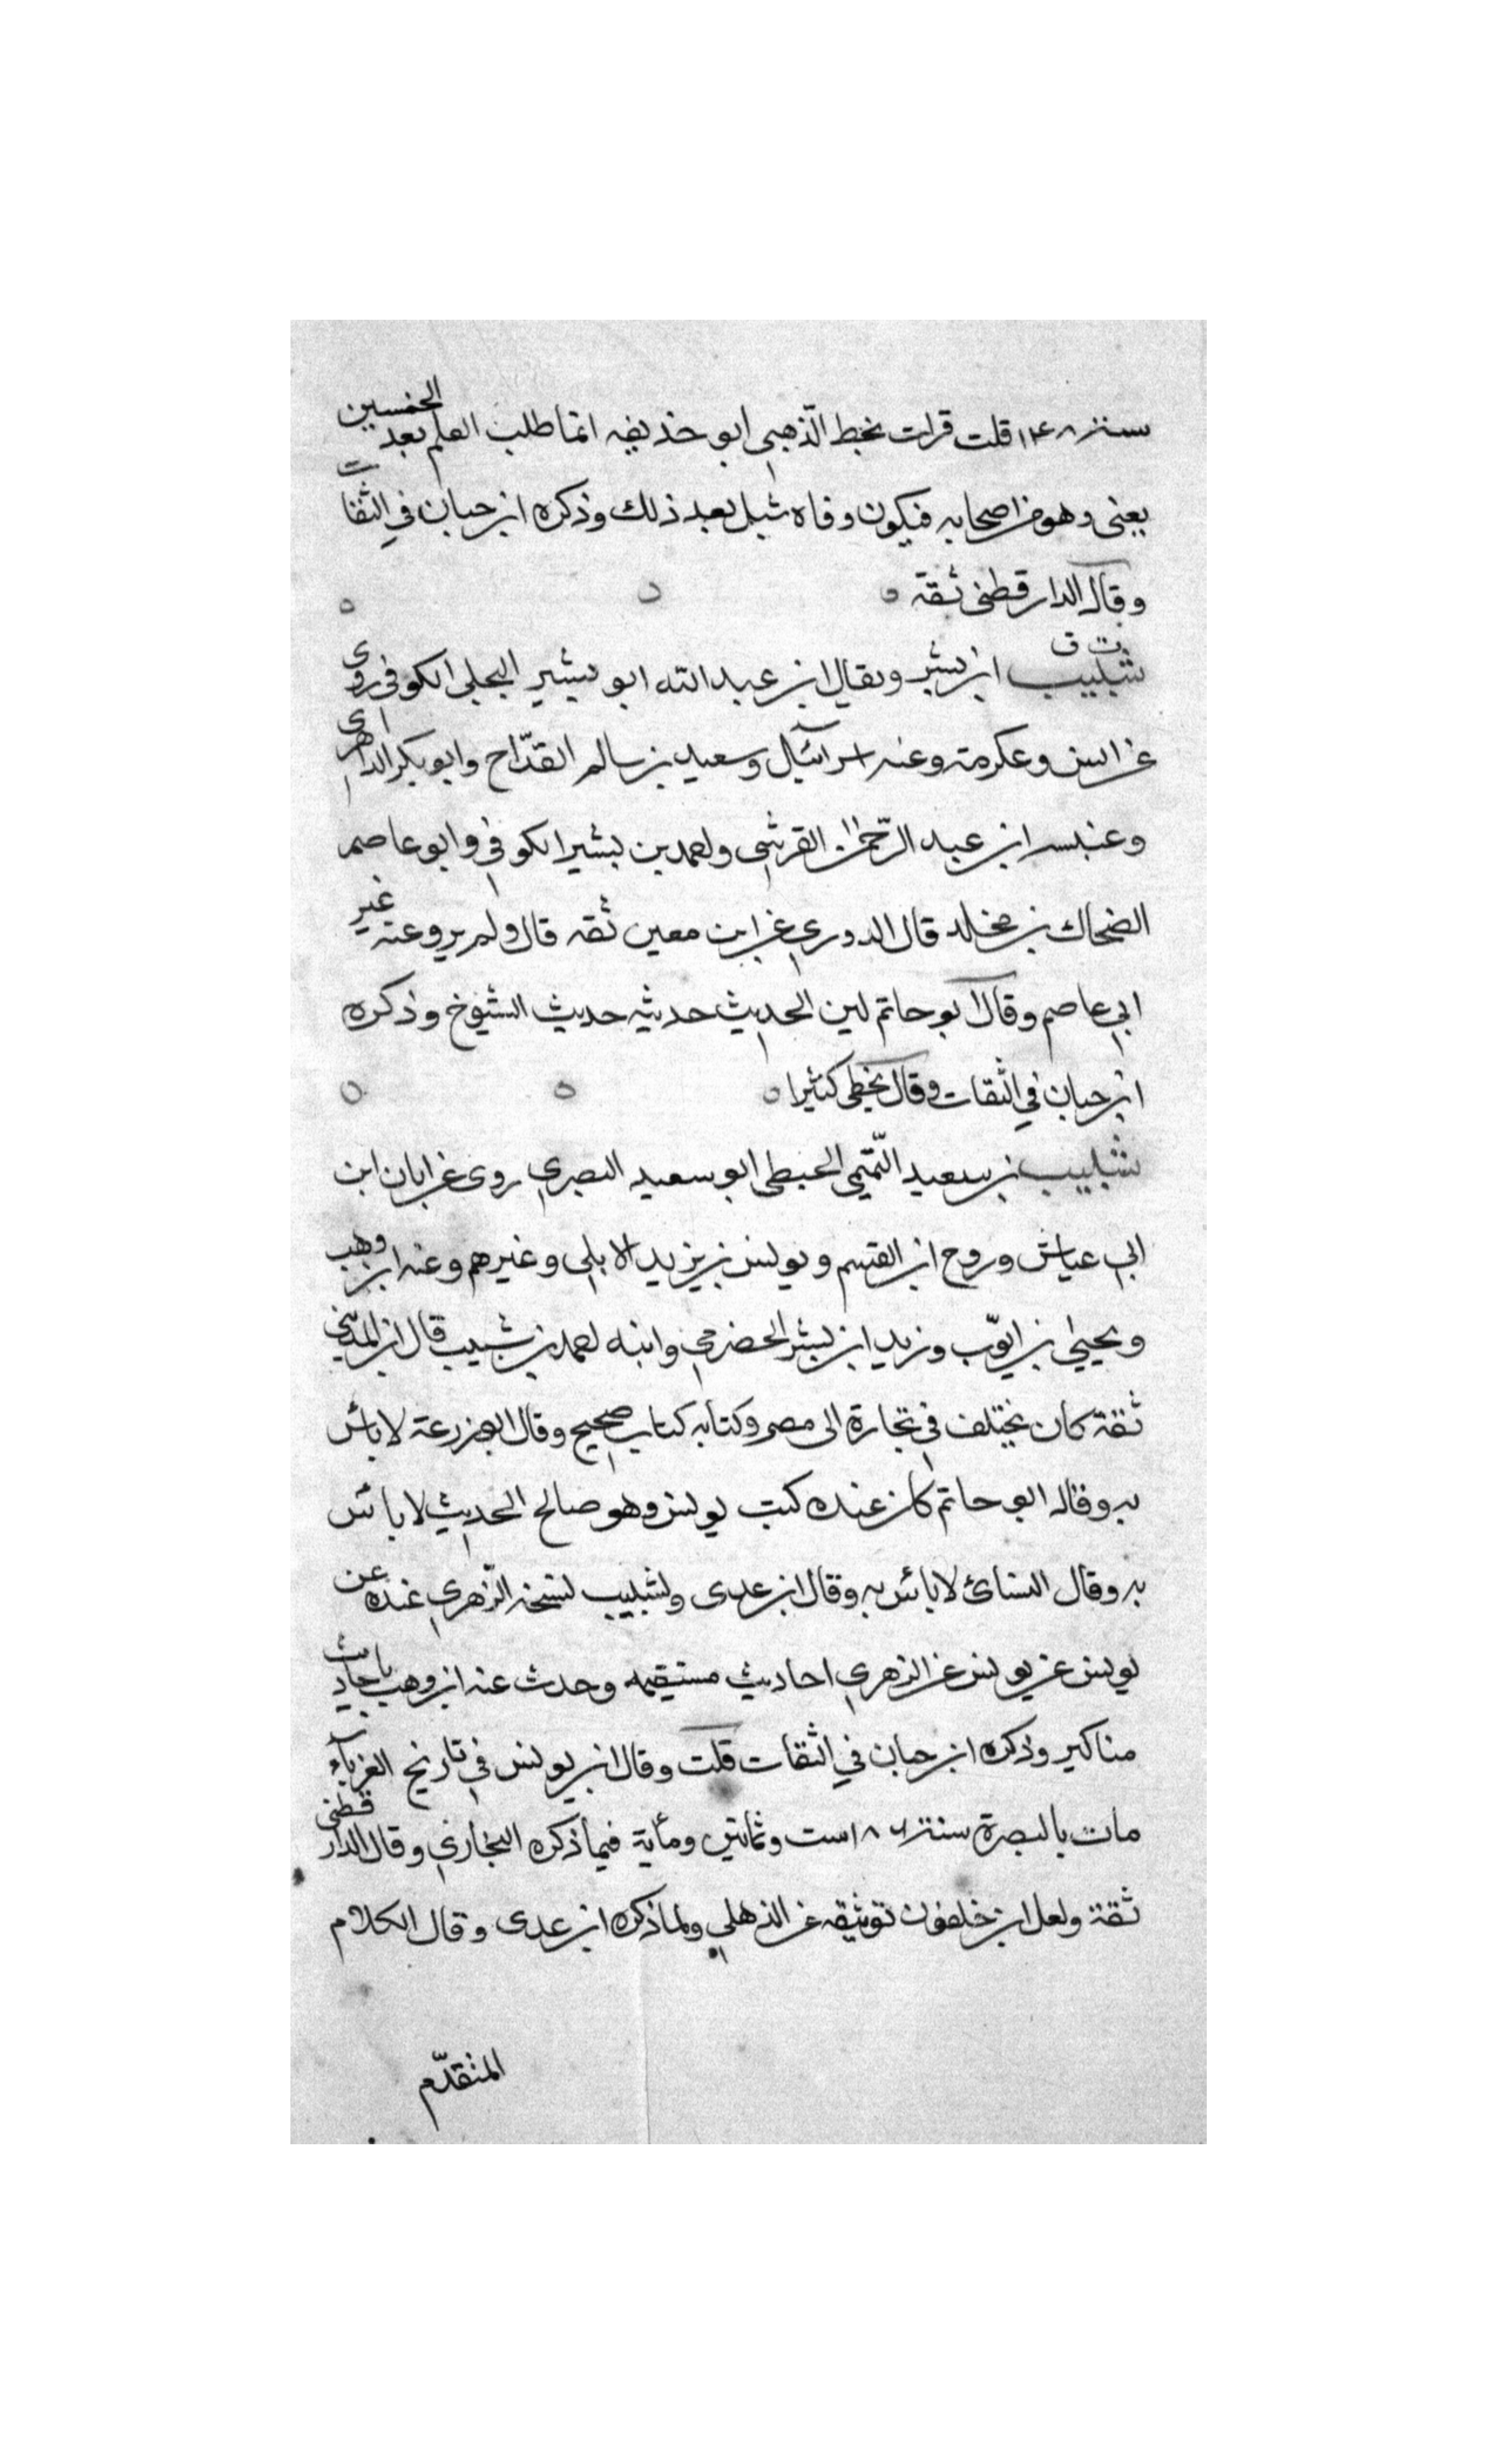 سنة ١٤٨ قلت قرات بخط الذهبي ابو حذيفه انما طلب العلم بعد الخمسين
يعنى وهو من اصحابه فيكون وفاه شبل بعد ذلك وذكره ابن حبان في الثقات
وقال الدارقطنى ثقة
ت ق
شبيب ابن بشر ويقال ابن عبد الله ابو بشير البجلي الكوفي روى
عن انس وعكرمة وعنه اسرآئيل وسعيد بن سالم القدّاح وابو بكر الداهرى
وعنبسه ابن عبد الرّحمن القرشي واحمد بن بشير الكوفي وابو عاصم
الضحاك بن مخلد قال الدوري عن ابن معين ثقه قال ولم يرو عنه غير
ابي عاصم وقال ابو حاتم لين الحديث حديثه حديث الشيوخ وذكره
ابن حبان في الثقات وقال يخطى كثيرا
شبيب بن سعيد التّميمي الحبطي ابو سعيد البصري روى عن ابان ابن
ابي عياش وروح ابن القسم ويونس بن يزيد الايلي وغيرهم وعنه ابن وهب
ويحيي بن ايوّب وزيد ابن بشر الحضرمي وابنه احمد بن شبيب قال ابن المديني
ثقة كان يختلف في تجارة الى مصر وكتابه كتاب صحيح وقال ابو زرعة لا باس
به وقال ابو حاتم كان عنده كتب يونس وهو صالح الحديث لا بائس
به وقال النسائ لا بائس به وقال ابن عدى ولشبيب نسخه الزّهري عنده عن
يونس عن يونس عن الزهري احاديث مستقيمه وحدث عنه ابن وهب باحاديث
مناكير وذكره ابن حبان في الثقات قلت وقال ابن يونس في تاريخ الغربآء
مات بالبصرة سنة ١٨٦ ست وثمانين ومأية فيما ذكره البخاري وقال الدارقطنى
ثقة ولعل ابن خلفون توثيقه عن الذهلي ولما ذكره ابن عدى وقال الكلام
المتقدّم